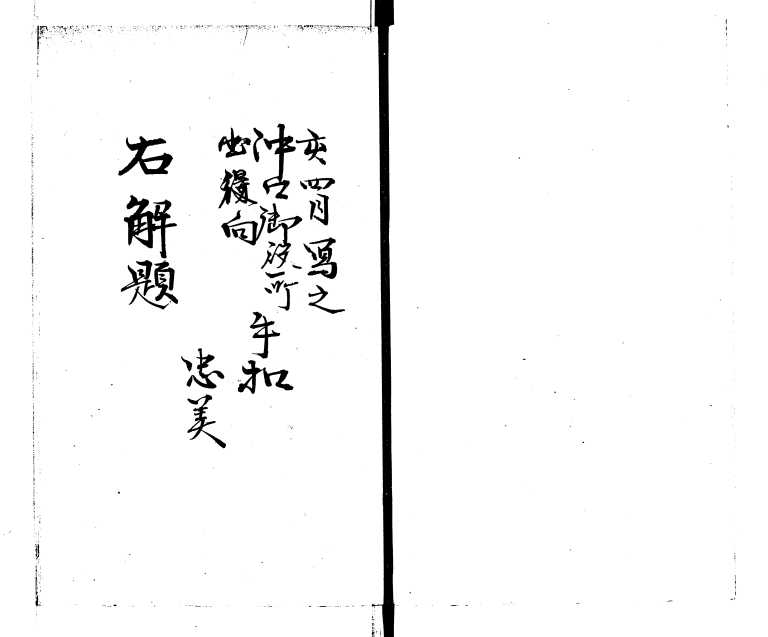 亥四月写之
沖口御役所
出役向
手扣
忠美
右解題